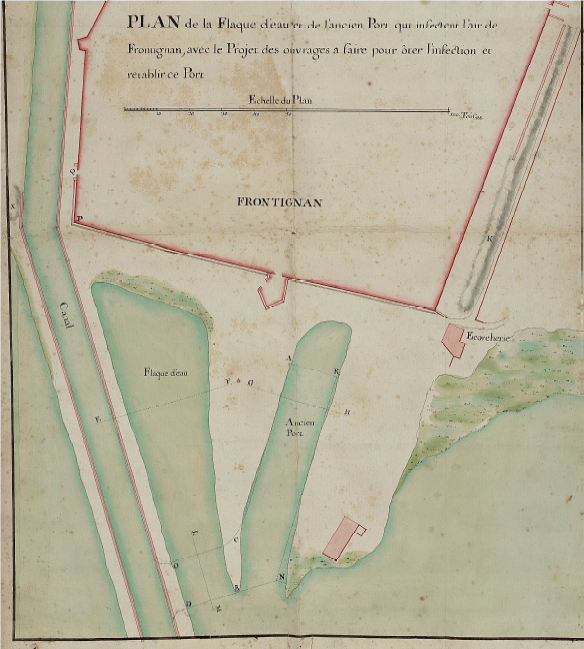 PLAN de la Flaque d'eau et de l'ancien Port qui infectent l'air de
Frontignan, avec le Projet des ouvrages a faire pour ôter l'infection et
retablir ce Port
Echelle du Plan
Toises
FRONTIGNAN
Q
X
P
K
Canal
Ecorcherie
Flaque d'eau
A
Y
G
H
Ancien
Port
C
O
D
N
M